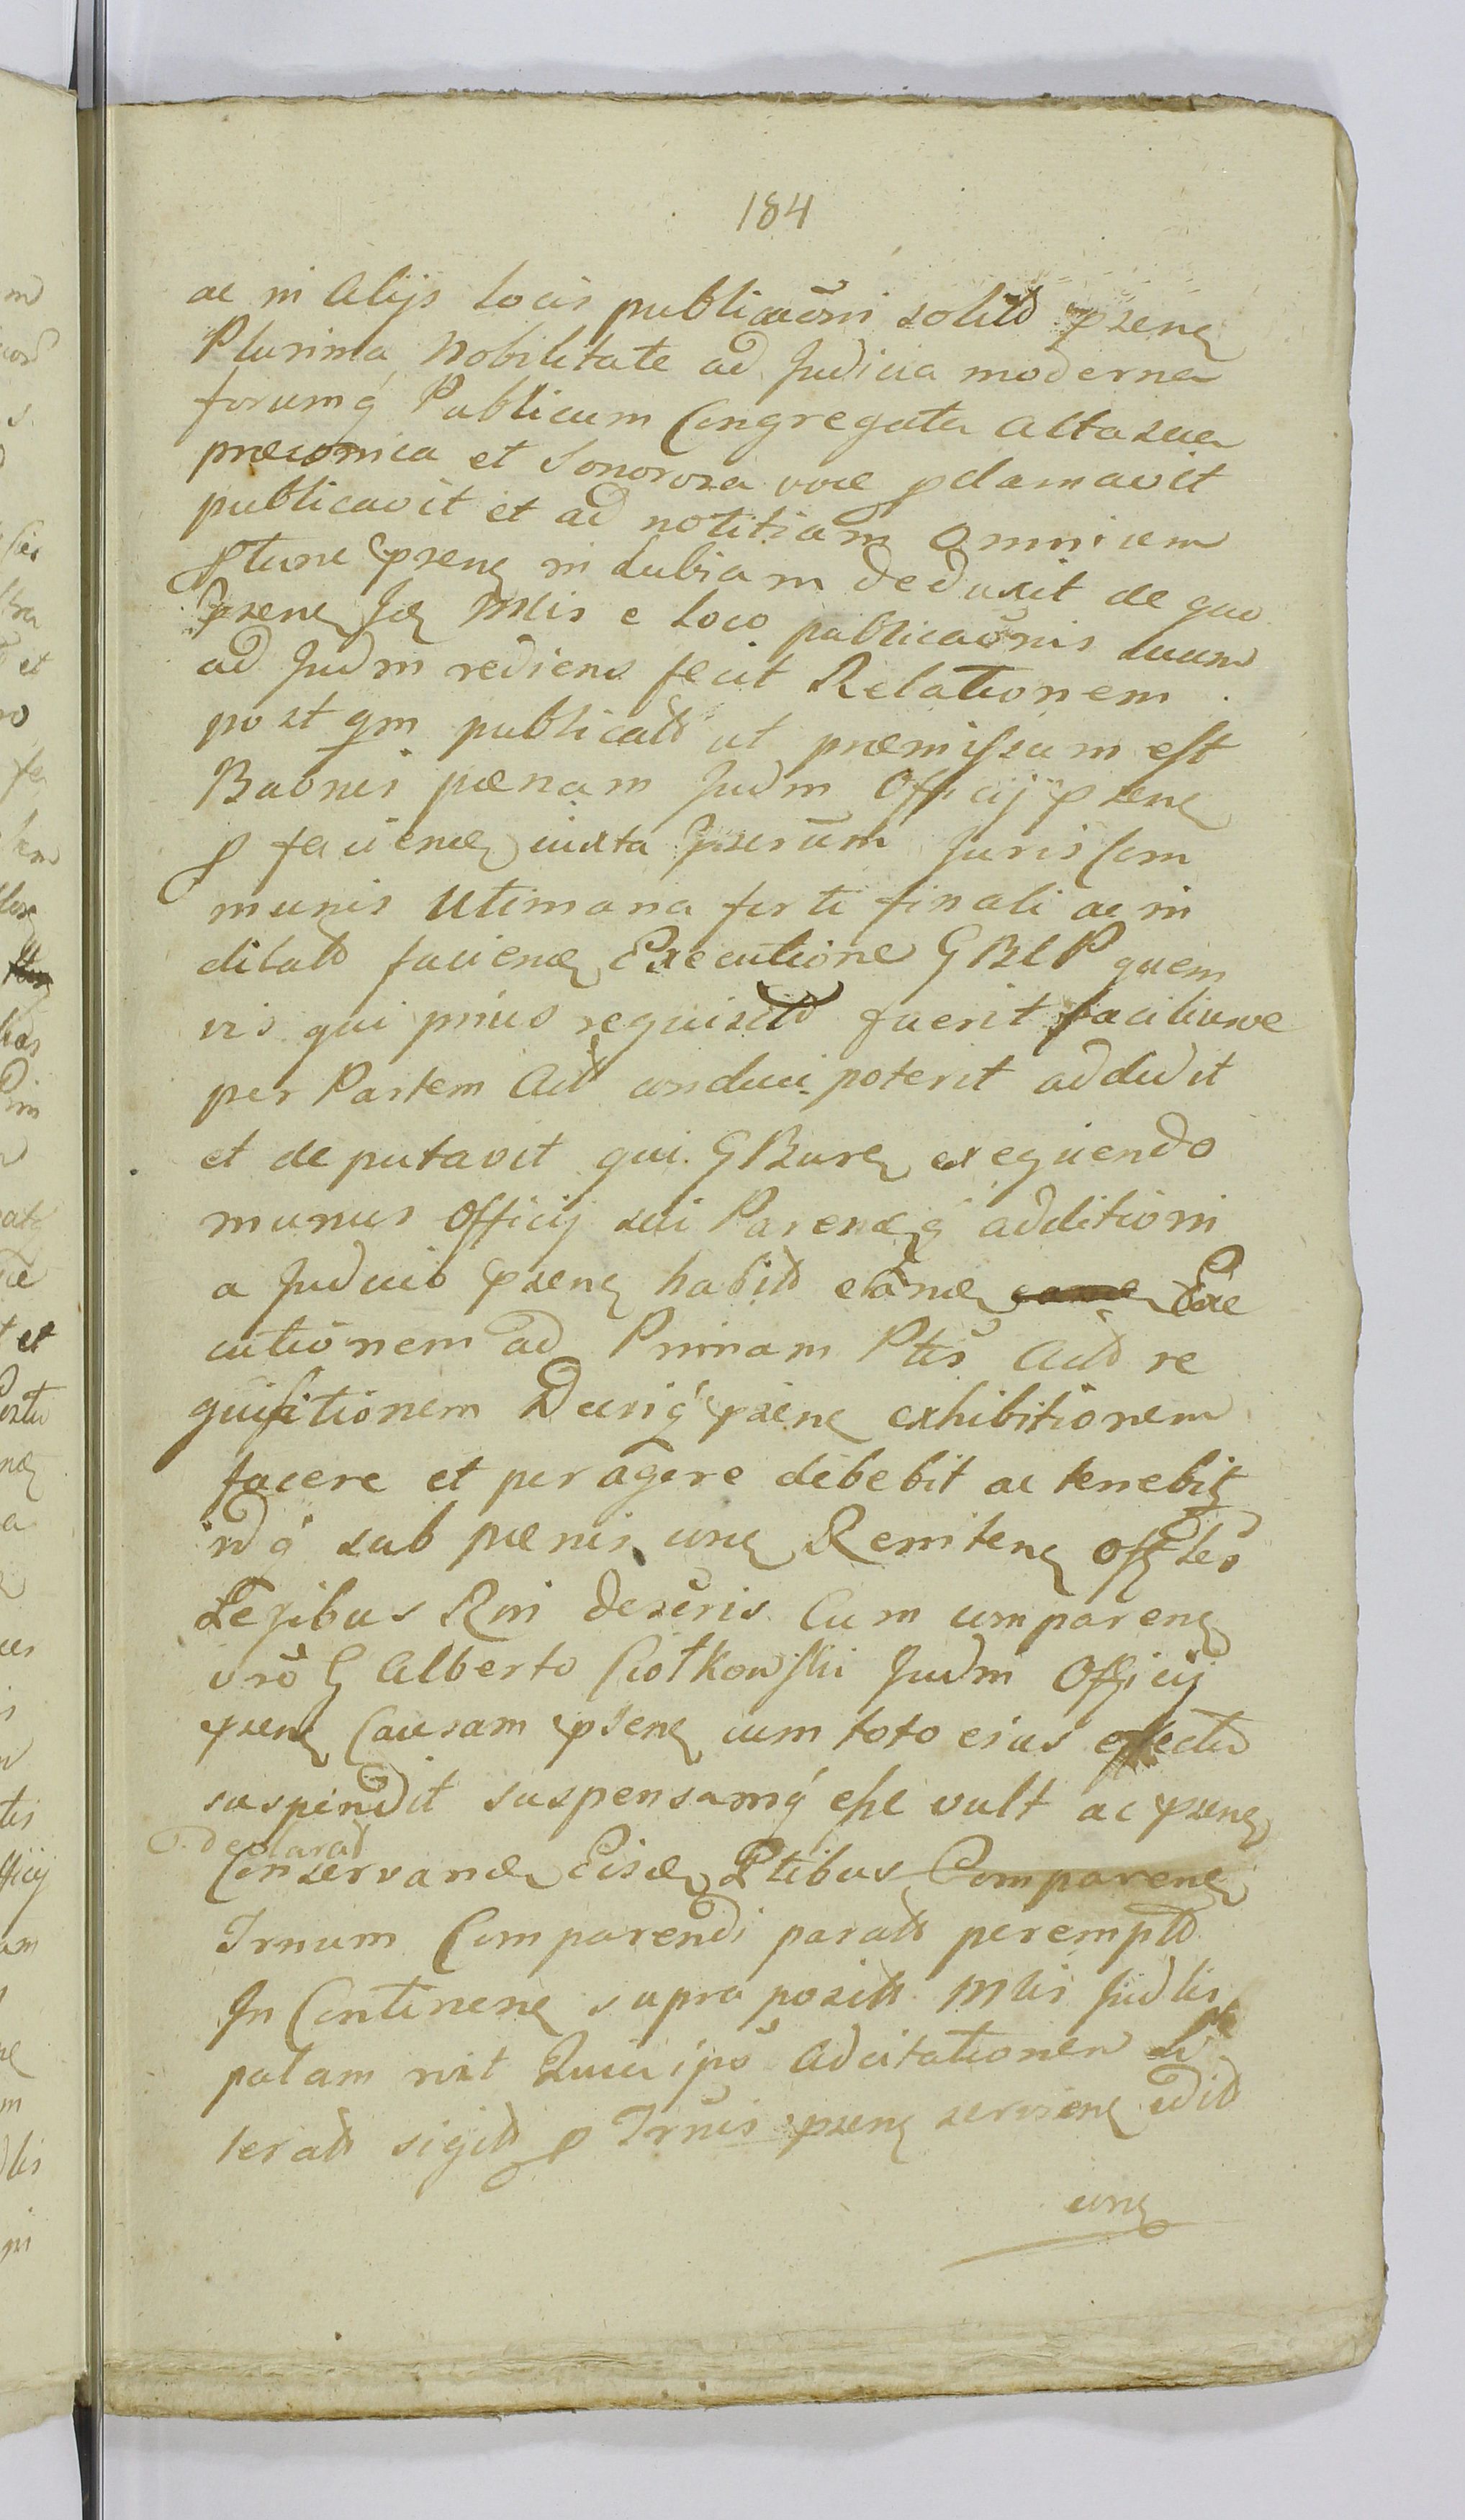 184
ac in Alijs Locis publicaoni solitis psens
Plurima Nobilitate ad Judicia moderna
forumq Publicum Congregata Alta sua
præconica et Sonorosa voce pclamavit
publicavit et ad notitiam Omnium
ptunc psens indubiam deduxit de quo
psens Jdz Mlis e Loco publicaonis huum
ad Judm rediens fecit Relationem
post qm publicata ut præmissum est
Baonis pœnam Judm Officij psens
p faciend iuxta pserum Juris Com
munis Ultimana forti finali ac in
dilata faciend Executione GBCP quem
vis qui prius requisit fuerit faciliusve
per Partem Act conduci poterit addidit
et deputavit qui GBurg exequendo
munus Officij sui Parendq additioni
a Judicio psens habita eand Exe
cutionem ad Primam Ptis Act re
quisitionem Decriq psens exhibitionem
facere et peragere debebit ac tenebit
idq sub pœnis cong Renitens
Legibus Rni descris Cum comparens
vro G Alberto Ciotkowski Judm Officij
psens Causam psens cum toto eius effectu
suspendit suspensamq esse vult ac psens
declarat
Conservand Eisd Ptibus Comparens
Trnum Comparendi parata perempt
In Continens supra posit Mlis Judlis
palam rit Quia ipse Adcitationem Li
terat sigilt p Trnis psens serviens edit
cong